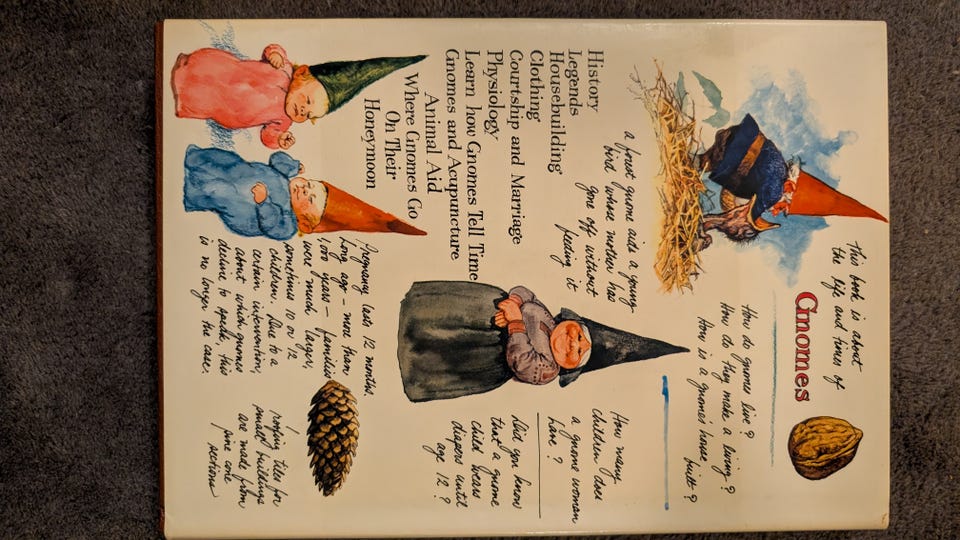 This book is about
the life and times of
Gnomes
How do gnomes live?
How do they make a living?
How is a gnome's house built?
a forest gnome aids a young
bird whose mother has
gone off without
feeding it
History
Legends
Housebuilding
Clothing
Courtship and Marriage
Physiology
Learn how Gnomes Tell Time
Gnomes and Acupuncture
Animal Aid
Where Gnomes Go
On Their
Honeymoon
How many
children does
a gnome woman
have?
Did you know
that a gnome
child wears
diapers until
age 12?
Pregnancy lasts 12 months.
Long ago – more than
1,000 years – families
were much larger,
sometimes 10 or 12
children. Due to a
certain intervention,
about which gnomes
decline to speak, this
is no longer the case.
roofing tiles for
small buildings
are made from
pine cone
sections